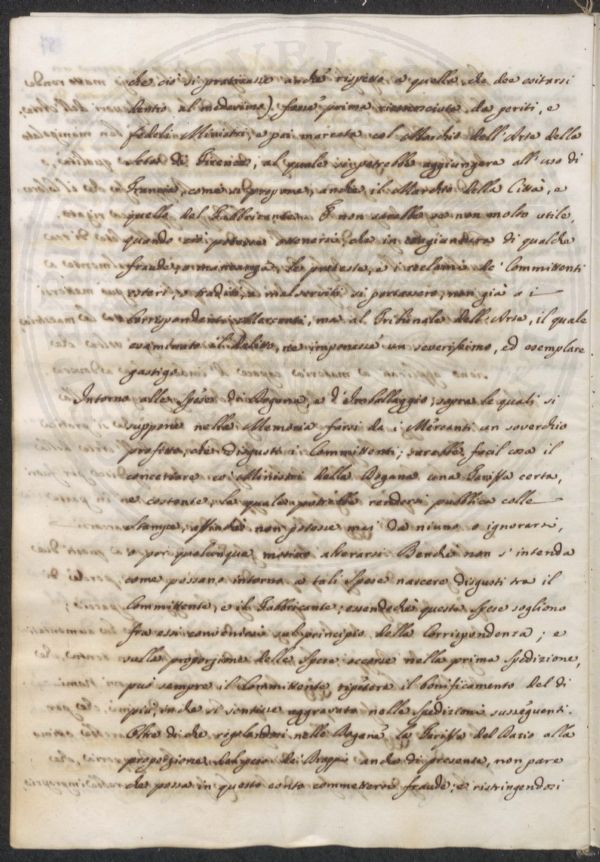 che ciò si praticasse anche rispetto a quella, che dee esitarsi
dentro al medesimo) fosse prima riconosciuta da periti, e
fedeli Ministri, e poi marcata col Marchio dell'Arte della
Seta di Firenze, al quale si potrebbe aggiungere all'uso di
Francia, come si propone, anche il Marchio della Città, e
quello del Fabbricante. E non sarebbe se non molto utile,
quando si potesse ottenere, che in congiuntura di qualche
fraude, o mancanza, le proteste, e i reclami de' Committenti
esteri, o traditi, o mal serviti si portassero, non già a i
Corrispondenti Mercanti, ma al Tribunale dell'Arte, il quale
esaminato il Delitto, ne imponesse un severissimo, ed esemplare
gastigo.
Intorno alle Spese di Dogana, e d'Imballaggio, sopra le quali si
suppone nella Memoria farsi da i Mercanti un soverchio
profitto, che disgusta i Committenti; sarebbe facil cosa il
concertare co' Ministri della Dogana una Tariffa certa,
e costante, la quale potrebbe rendersi pubblica colle
stampe, affinchè non potesse mai da niuno o ignorarsi,
o per qualunque motivo alterarsi. Benchè non s'intenda
come possano intorno a tali Spese nascere disgusti tra il
Committente, e il Fabbricante; essendochè queste Spese sogliono
fra essi convenirsi sul principio della Corrispondenza; e
sulla proporzione delle Spese occorse nella prima Spedizione,
può sempre il Committente ripetere il bonificamento del di
più, in che si sentisse aggravato nelle Spedizioni susseguenti.
Oltre di che regolandosi nelle Dogane la Tariffa del Dazio alla
proporzione del peso dei Drappi anche di presente, non pare
che possa in questo conto commettersi fraude; e ristringendosi